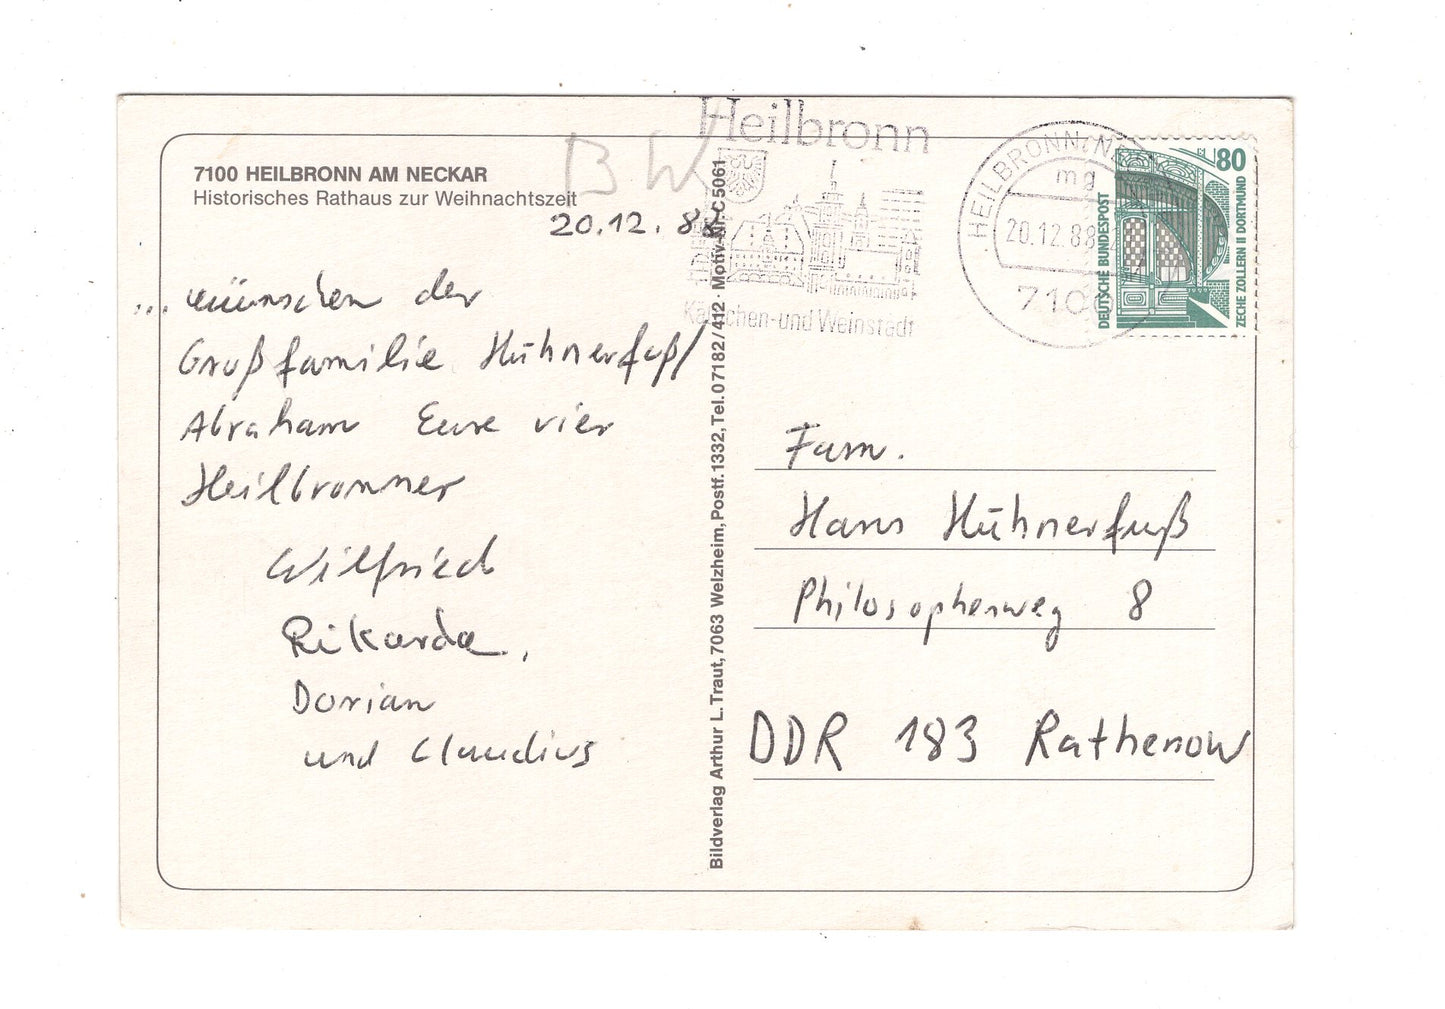 7100 HEILBRONN AM NECKAR
Historisches Rathaus zur Weihnachtszeit
BW
20.12.88
... wünschen der
Großfamilie Hühnerfuß/
Abraham Eure vier
Heilbronner
Wilfried
Rikarda,
Dorian
und Claudius
Bildverlag Arthur L. Traut, 7063 Welzheim, Postf. 1332, Tel. 07182/412 · Motiv-Nr. C 5061
Heilbronn
Käthchen-und Weinstadt
HEILBRONN
mg
20.12.88
7100
80
DEUTSCHE BUNDESPOST
ZECHE ZOLLERN II DORTMUND
Fam.
Hans Hühnerfuß
Philosophenweg 8
DDR 183 Rathenow